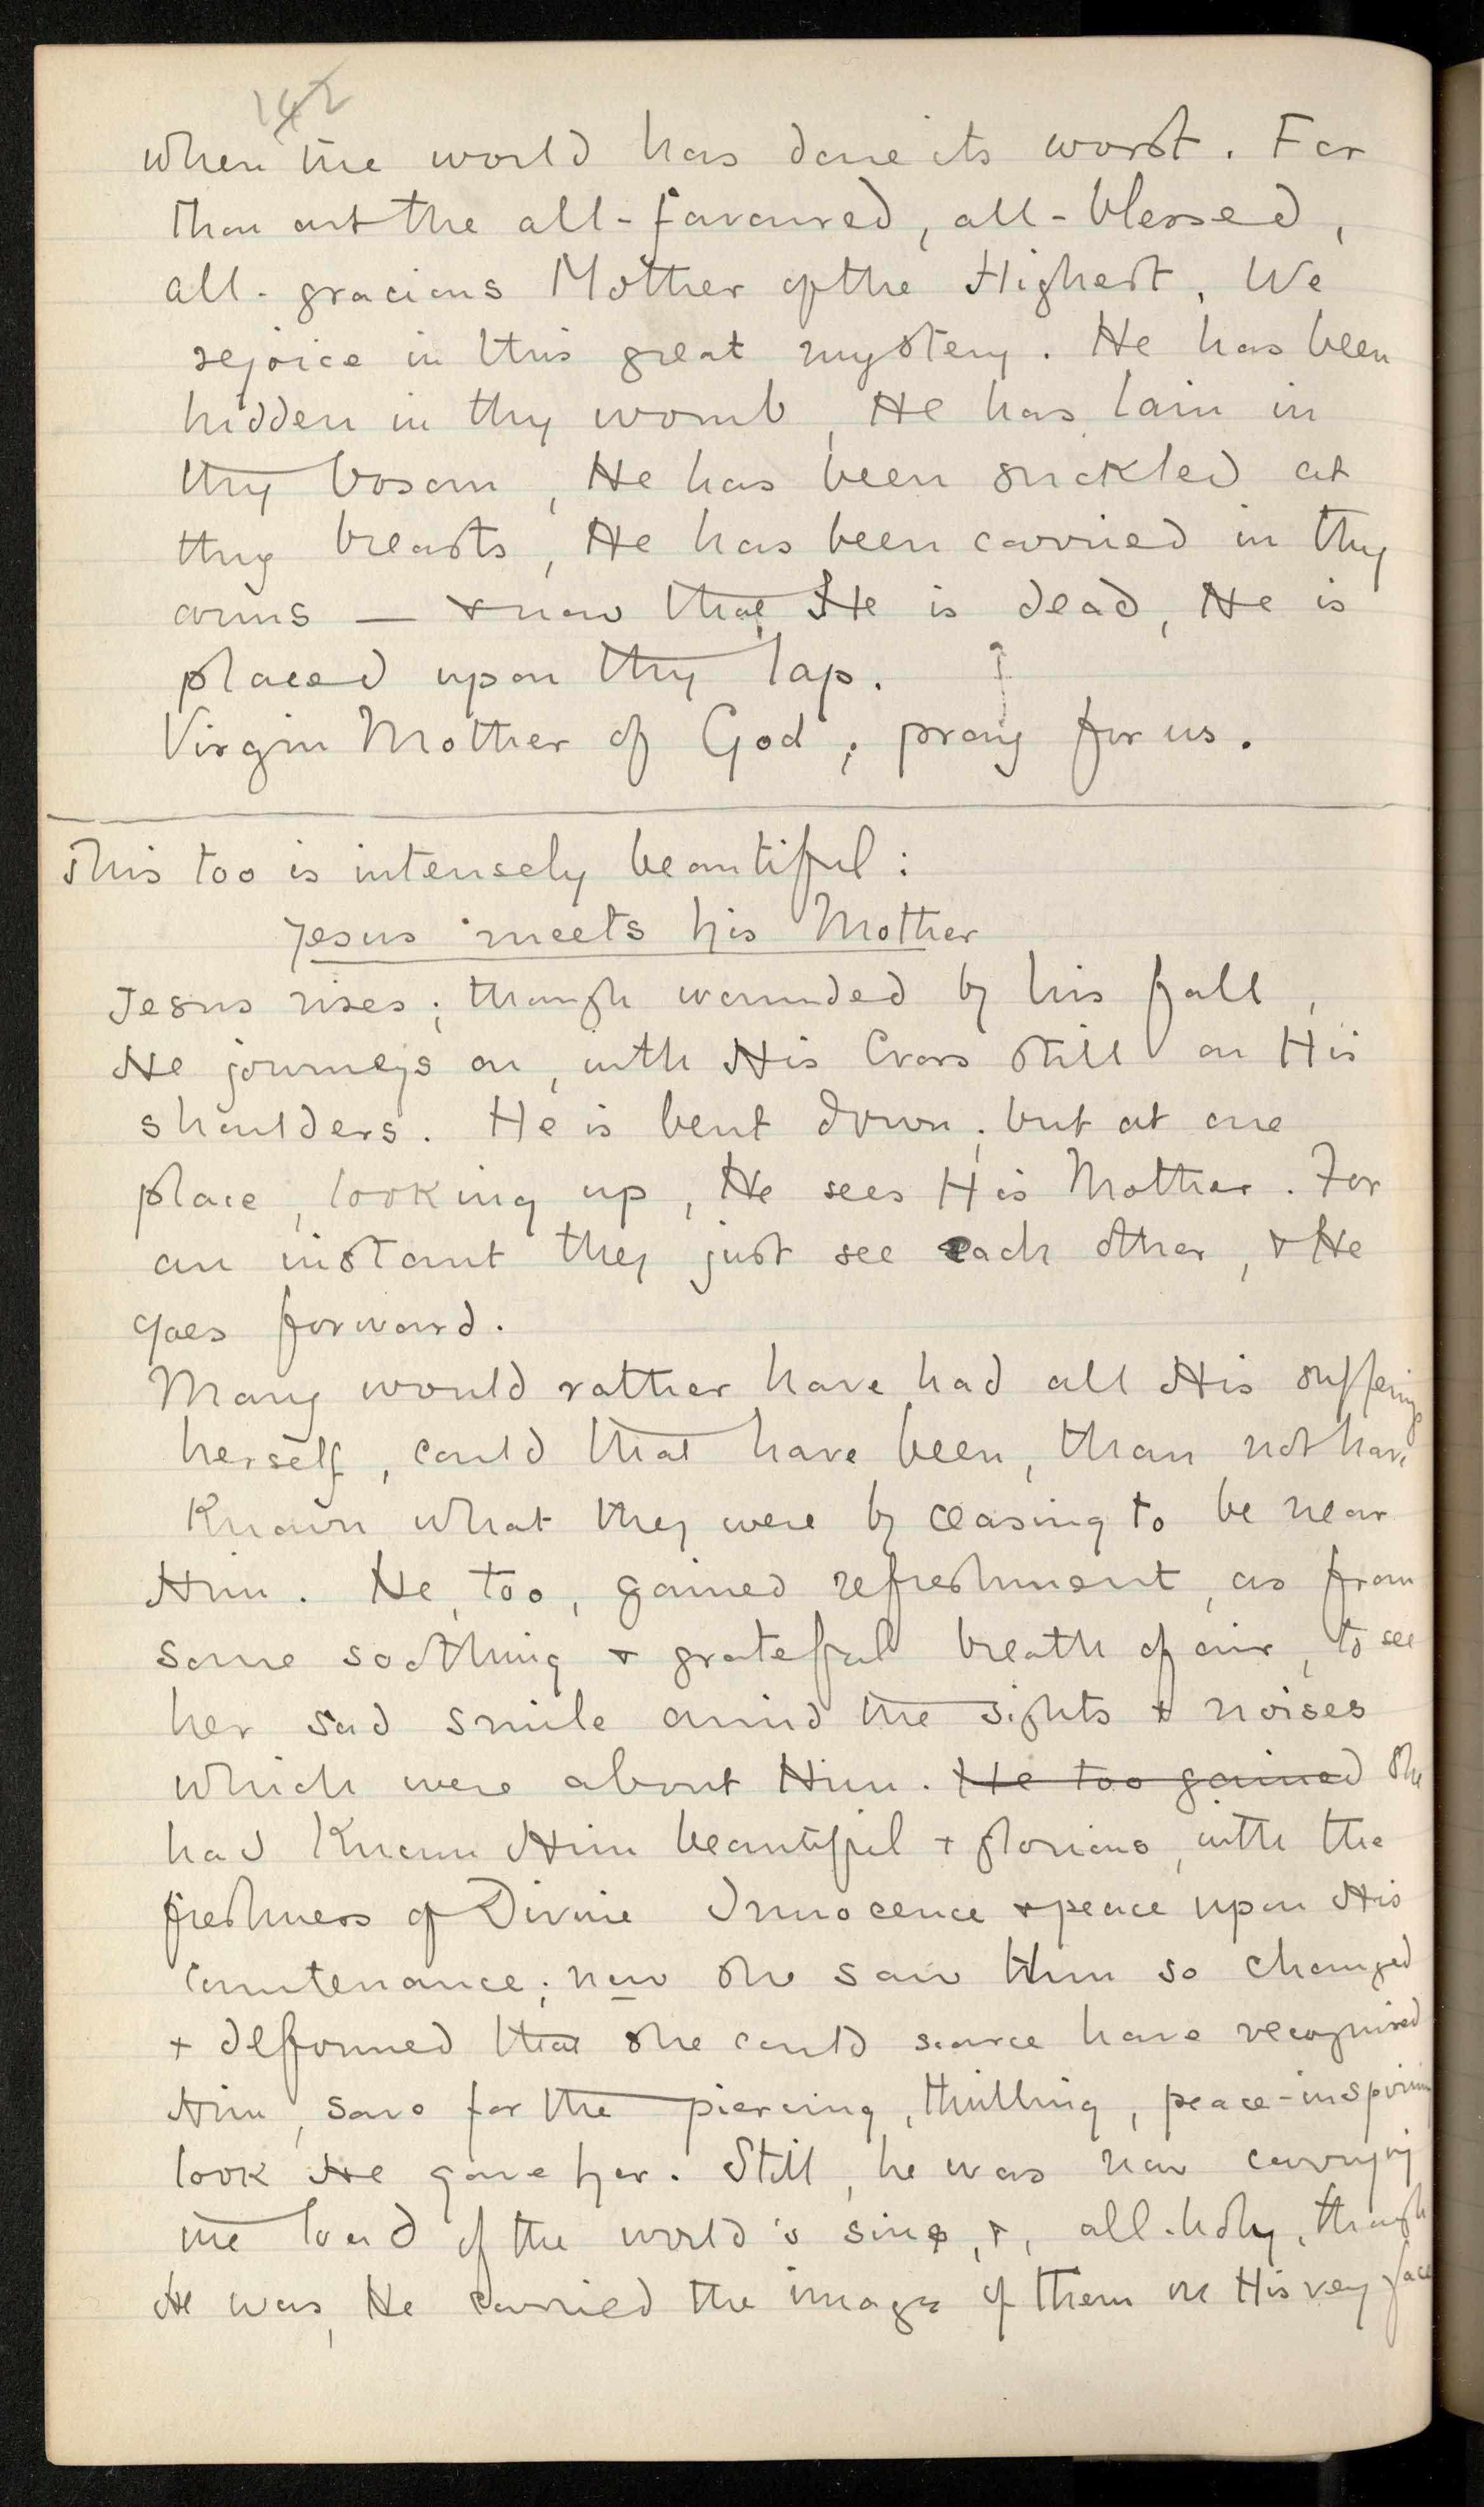 142
when the world has done its worst. For
thou art the all-favoured, all-blessed,
all-gracious Mother of the Highest. We
rejoice in this great mystery. He has been
hidden in thy womb, He has lain in
thy bosom, He has been suckled at
thy breasts, He has been carried in thy
arms — & now that He is dead, He is
placed upon thy lap.
Virgin Mother of God, pray for us.
This too is intensely beautiful:
Jesus meets his Mother
Jesus rises; though wounded by his fall,
He journeys on, with His Cross still on His
shoulders. He is bent down; but at one
place, looking up, He sees His Mother. For
an instant they just see each other, & He
goes forward.
Mary would rather have had all His sufferings
herself, could that have been, than not have
known what they were by ceasing to be near
Him. He, too, gained refreshment, as from
some soothing & grateful breath of air, to see
her sad smile amid the sights & noises
which were about Him. He too gained She
had known Him beautiful & glorious, with the
freshness of Divine Innocence & peace upon His
countenance; now she saw Him so changed
& deformed that she could scarce have recognised
Him, save for the piercing, thrilling, peace-inspiring
look He gave her. Still, he was now carrying
the load of the world's sins, &, all-holy, though
He was, He carried the image of them on His very face